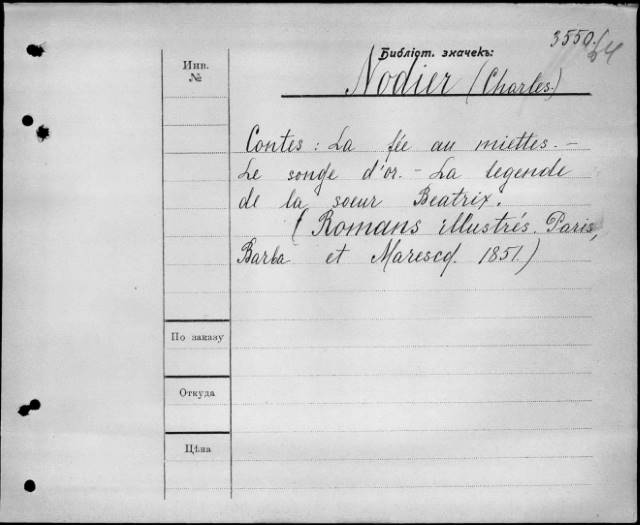 3550/64
Библіот. значекъ:
Инв.
№
Nodier (Charles.)
Contes: La fée au miettes. –
Le songe d'or. – La legende
de la soeur Beatrix.
(Romans illustrés. Paris,
Barba et Marescq. 1851.)
По заказу
Откуда
Цѣна